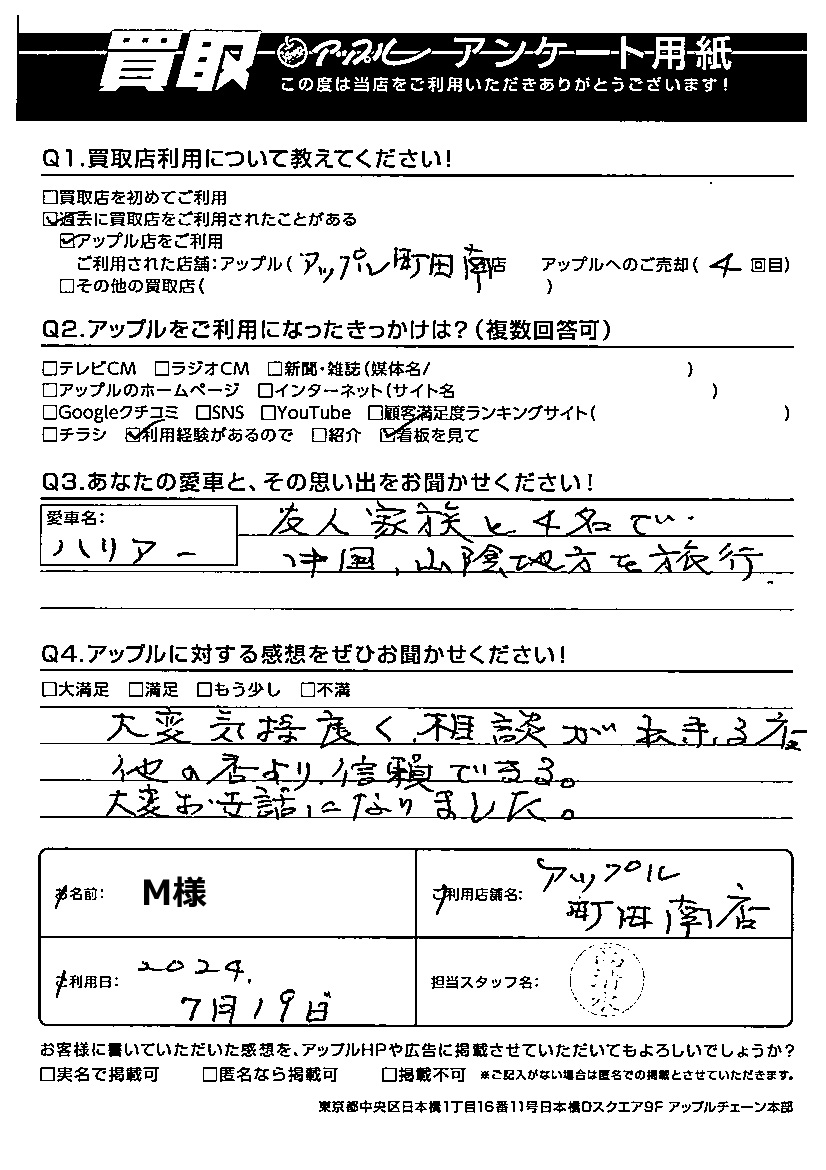 買取 アップル アンケート用紙
この度は当店をご利用いただきありがとうございます!
Q1.買取店利用について教えてください!
□買取店を初めてご利用
☑過去に買取店をご利用されたことがある
☑アップル店をご利用
ご利用された店舗:アップル(アップル町田南店 アップルへのご売却(4回目)
□その他の買取店( )
Q2.アップルをご利用になったきっかけは?(複数回答可)
□テレビCM □ラジオCM □新聞・雑誌(媒体名/ )
□アップルのホームページ □インターネット(サイト名 )
□Googleクチコミ □SNS □YouTube □顧客満足度ランキングサイト( )
□チラシ ☑利用経験があるので □紹介 ☑看板を見て
Q3.あなたの愛車と、その思い出をお聞かせください!
愛車名:
ハリアー
友人家族と4名で
中国、山陰地方を旅行
Q4.アップルに対する感想をぜひお聞かせください!
□大満足 □満足 □もう少し □不満
大変気持良く、相談が出来る店
他の店より信頼できる。
大変お世話になりました。
お名前: M様
ご利用店舗名: アップル
町田南店
ご利用日: 2024.
7月19日
担当スタッフ名:
お客様に書いていただいた感想を、アップルHPや広告に掲載させていただいてもよろしいでしょうか?
□実名で掲載可 □匿名なら掲載可 □掲載不可 ※ご記入がない場合は匿名での掲載とさせていただきます。
東京都中央区日本橋1丁目16番11号日本橋Dスクエア9F アップルチェーン本部